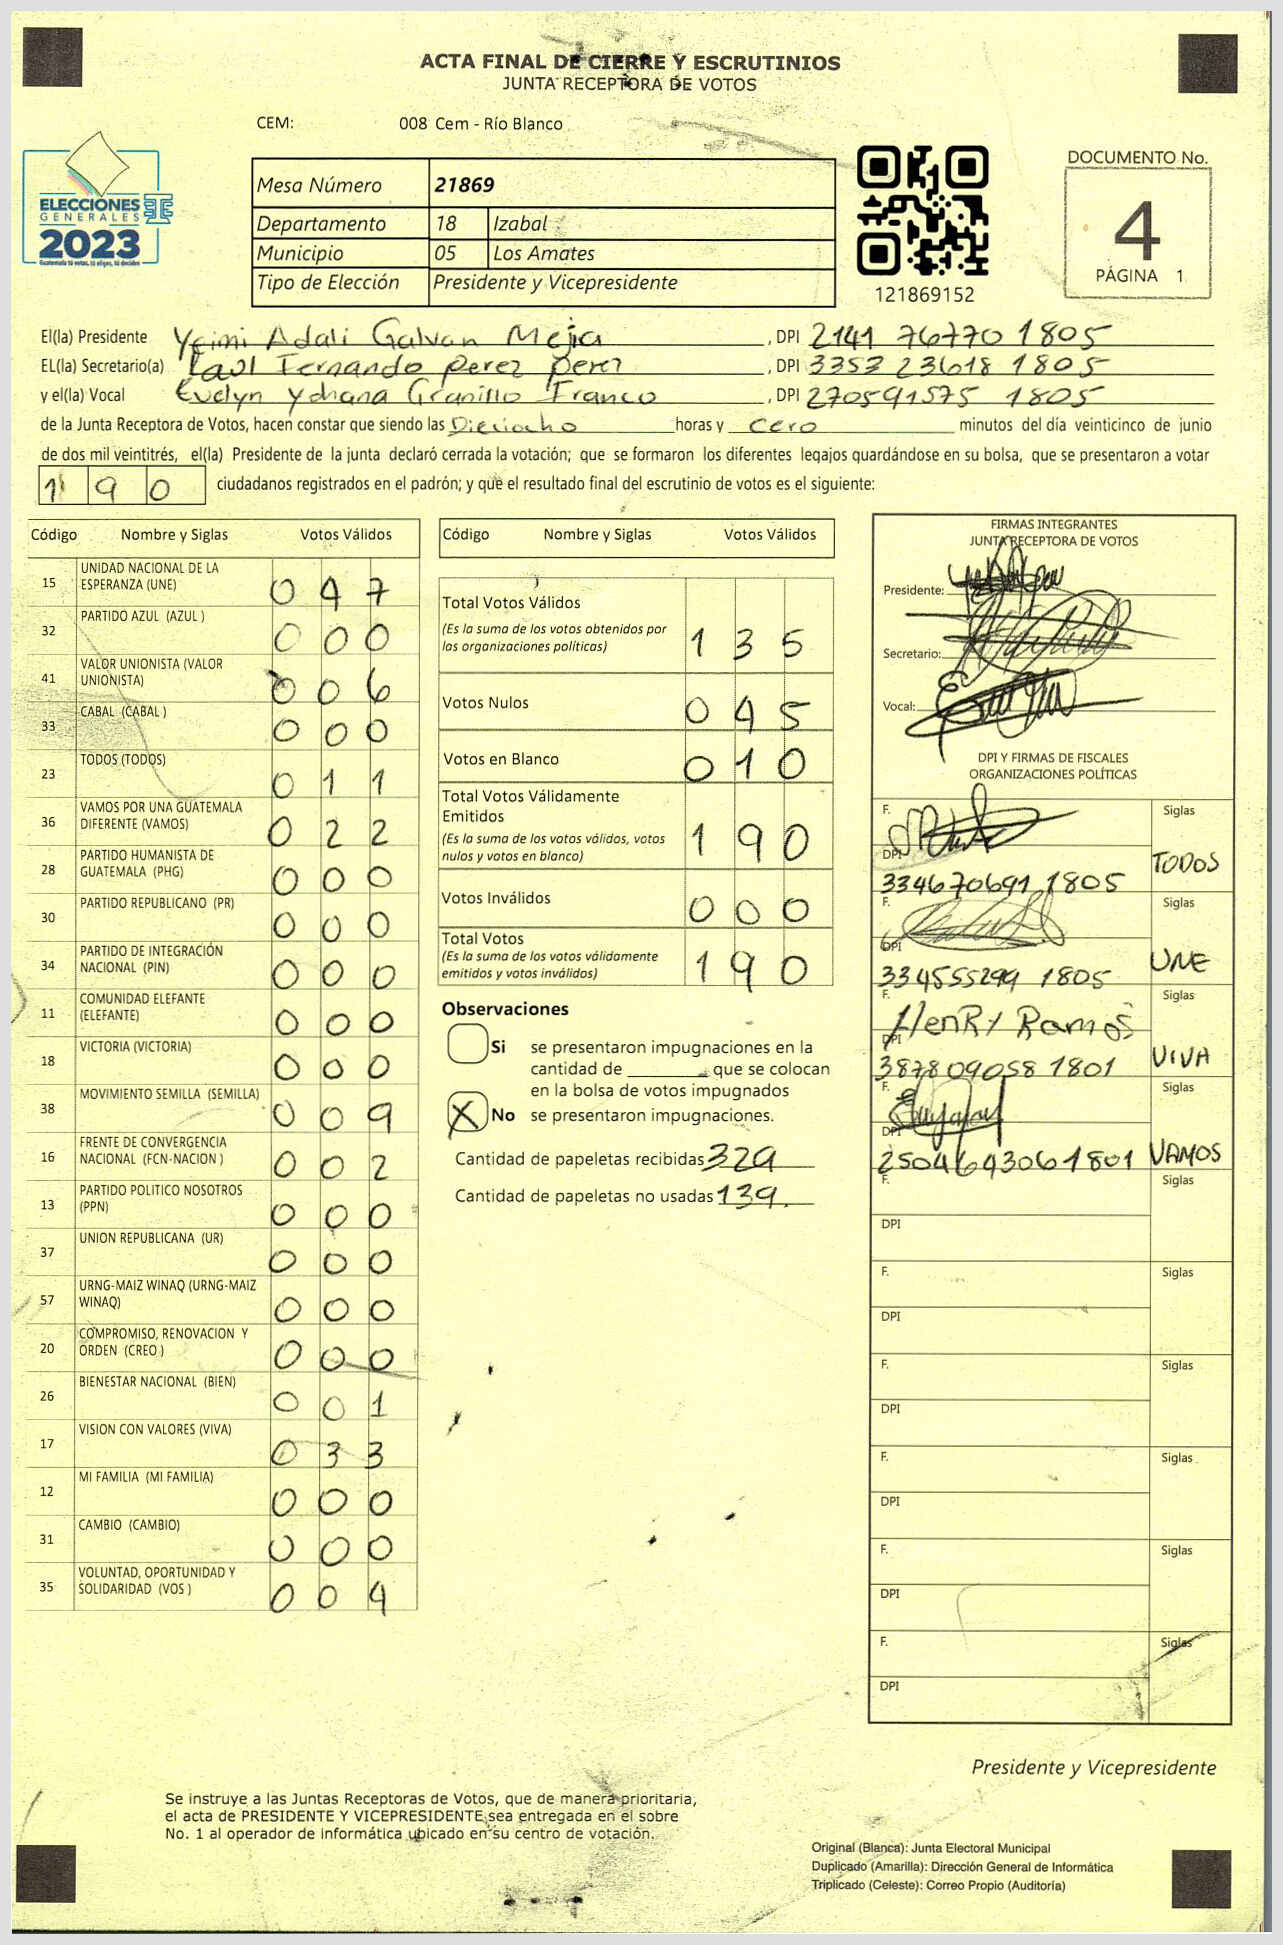 ACTA FINAL DE CIERRE Y ESCRUTINIOS
JUNTA RECEPTORA DE VOTOS
CEM: 008 Cem - Río Blanco
ELECCIONES
GENERALES
2023
Guatemala tú votas, tú eliges, tú decides
Mesa Número 21869
Departamento 18 Izabal
Municipio 05 Los Amates
Tipo de Elección Presidente y Vicepresidente
121869152
DOCUMENTO No.
4
PÁGINA 1
El(la) Presidente Yeimi Adali Galvan Mejia, DPI 2141 76770 1805
EL(la) Secretario(a) Raul Fernando perez perez, DPI 3353 23618 1805
y el(la) Vocal Evelyn Ydhana Granillo Franco, DPI 270591575 1805
de la Junta Receptora de Votos, hacen constar que siendo las Dieciocho horas y cero minutos del día veinticinco de junio
de dos mil veintitrés, el(la) Presidente de la junta declaró cerrada la votación; que se formaron los diferentes legajos guardándose en su bolsa, que se presentaron a votar
190 ciudadanos registrados en el padrón; y que el resultado final del escrutinio de votos es el siguiente:
Código Nombre y Siglas Votos Válidos
15 UNIDAD NACIONAL DE LA ESPERANZA (UNE) 0 4 7
32 PARTIDO AZUL (AZUL ) 0 0 0
41 VALOR UNIONISTA (VALOR UNIONISTA) 0 0 6
33 CABAL (CABAL ) 0 0 0
23 TODOS (TODOS) 0 1 1
36 VAMOS POR UNA GUATEMALA DIFERENTE (VAMOS) 0 2 2
28 PARTIDO HUMANISTA DE GUATEMALA (PHG) 0 0 0
30 PARTIDO REPUBLICANO (PR) 0 0 0
34 PARTIDO DE INTEGRACIÓN NACIONAL (PIN) 0 0 0
11 COMUNIDAD ELEFANTE (ELEFANTE) 0 0 0
18 VICTORIA (VICTORIA) 0 0 0
38 MOVIMIENTO SEMILLA (SEMILLA) 0 0 9
16 FRENTE DE CONVERGENCIA NACIONAL (FCN-NACION ) 0 0 2
13 PARTIDO POLITICO NOSOTROS (PPN) 0 0 0
37 UNION REPUBLICANA (UR) 0 0 0
57 URNG-MAIZ WINAQ (URNG-MAIZ WINAQ) 0 0 0
20 COMPROMISO, RENOVACION Y ORDEN (CREO ) 0 0 0
26 BIENESTAR NACIONAL (BIEN) 0 0 1
17 VISION CON VALORES (VIVA) 0 3 3
12 MI FAMILIA (MI FAMILIA) 0 0 0
31 CAMBIO (CAMBIO) 0 0 0
35 VOLUNTAD, OPORTUNIDAD Y SOLIDARIDAD (VOS ) 0 0 4
Código Nombre y Siglas Votos Válidos
Total Votos Válidos
(Es la suma de los votos obtenidos por las organizaciones políticas) 1 3 5
Votos Nulos 0 4 5
Votos en Blanco 0 1 0
Total Votos Válidamente Emitidos
(Es la suma de los votos válidos, votos nulos y votos en blanco) 1 9 0
Votos Inválidos 0 0 0
Total Votos
(Es la suma de los votos válidamente emitidos y votos inválidos) 1 9 0
Observaciones
Si se presentaron impugnaciones en la
cantidad de ________ que se colocan
en la bolsa de votos impugnados
X No se presentaron impugnaciones.
Cantidad de papeletas recibidas 329
Cantidad de papeletas no usadas 139.
FIRMAS INTEGRANTES
JUNTA RECEPTORA DE VOTOS
Presidente:
Secretario:
Vocal:
DPI Y FIRMAS DE FISCALES
ORGANIZACIONES POLÍTICAS
F. Siglas
DPI 334670691 1805 TODOS
F. Siglas
DPI 334555299 1805 UNE
F. Henry Ramos Siglas
DPI 387809058 1801 VIVA
F. Siglas
DPI 250464306 1801 VAMOS
F. Siglas
DPI
F. Siglas
DPI
F. Siglas
DPI
F. Siglas
DPI
F. Siglas
DPI
F. Siglas
DPI
Presidente y Vicepresidente
Se instruye a las Juntas Receptoras de Votos, que de manera prioritaria,
el acta de PRESIDENTE Y VICEPRESIDENTE sea entregada en el sobre
No. 1 al operador de informática ubicado en su centro de votación.
Original (Blanca): Junta Electoral Municipal
Duplicado (Amarilla): Dirección General de Informática
Triplicado (Celeste): Correo Propio (Auditoría)